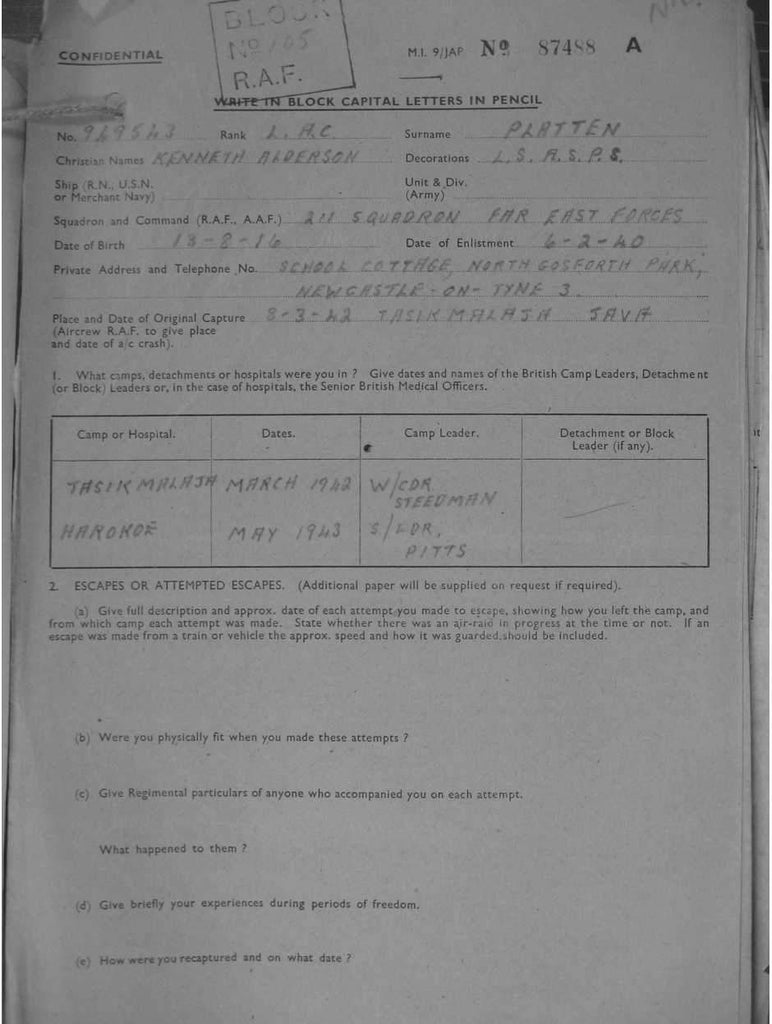 BLOCK
No 105
R.A.F.
CONFIDENTIAL
M.I. 9/JAP No 87488 A
WRITE IN BLOCK CAPITAL LETTERS IN PENCIL
No. 949543 Rank L.A.C. Surname PLATTEN
Christian Names KENNETH ALDERSON Decorations
Ship (R.N., U.S.N. Unit & Div.
or Merchant Navy) (Army)
Squadron and Command (R.A.F., A.A.F.) 211 SQUADRON FAR EAST FORCES
Date of Birth 13-8-16 Date of Enlistment 6-2-40
Private Address and Telephone No. SCHOOL COTTAGE, NORTH GOSFORTH PARK,
NEWCASTLE-ON-TYNE 3.
Place and Date of Original Capture 8-3-42 TASIKMALAJA JAVA
(Aircrew R.A.F. to give place
and date of a/c crash).
1. What camps, detachments or hospitals were you in ? Give dates and names of the British Camp Leaders, Detachment
(or Block) Leaders or, in the case of hospitals, the Senior British Medical Officers.
Camp or Hospital. Dates. Camp Leader. Detachment or Block
Leader (if any).
TASIKMALAJA MARCH 1942 W/CDR
STEEDMAN
HAROKOE MAY 1943 S/LDR,
PITTS
2. ESCAPES OR ATTEMPTED ESCAPES. (Additional paper will be supplied on request if required).
(a) Give full description and approx. date of each attempt you made to escape, showing how you left the camp, and
from which camp each attempt was made. State whether there was an air-raid in progress at the time or not. If an
escape was made from a train or vehicle the approx. speed and how it was guarded should be included.
(b) Were you physically fit when you made these attempts ?
(c) Give Regimental particulars of anyone who accompanied you on each attempt.
What happened to them ?
(d) Give briefly your experiences during periods of freedom.
(e) How were you recaptured and on what date ?